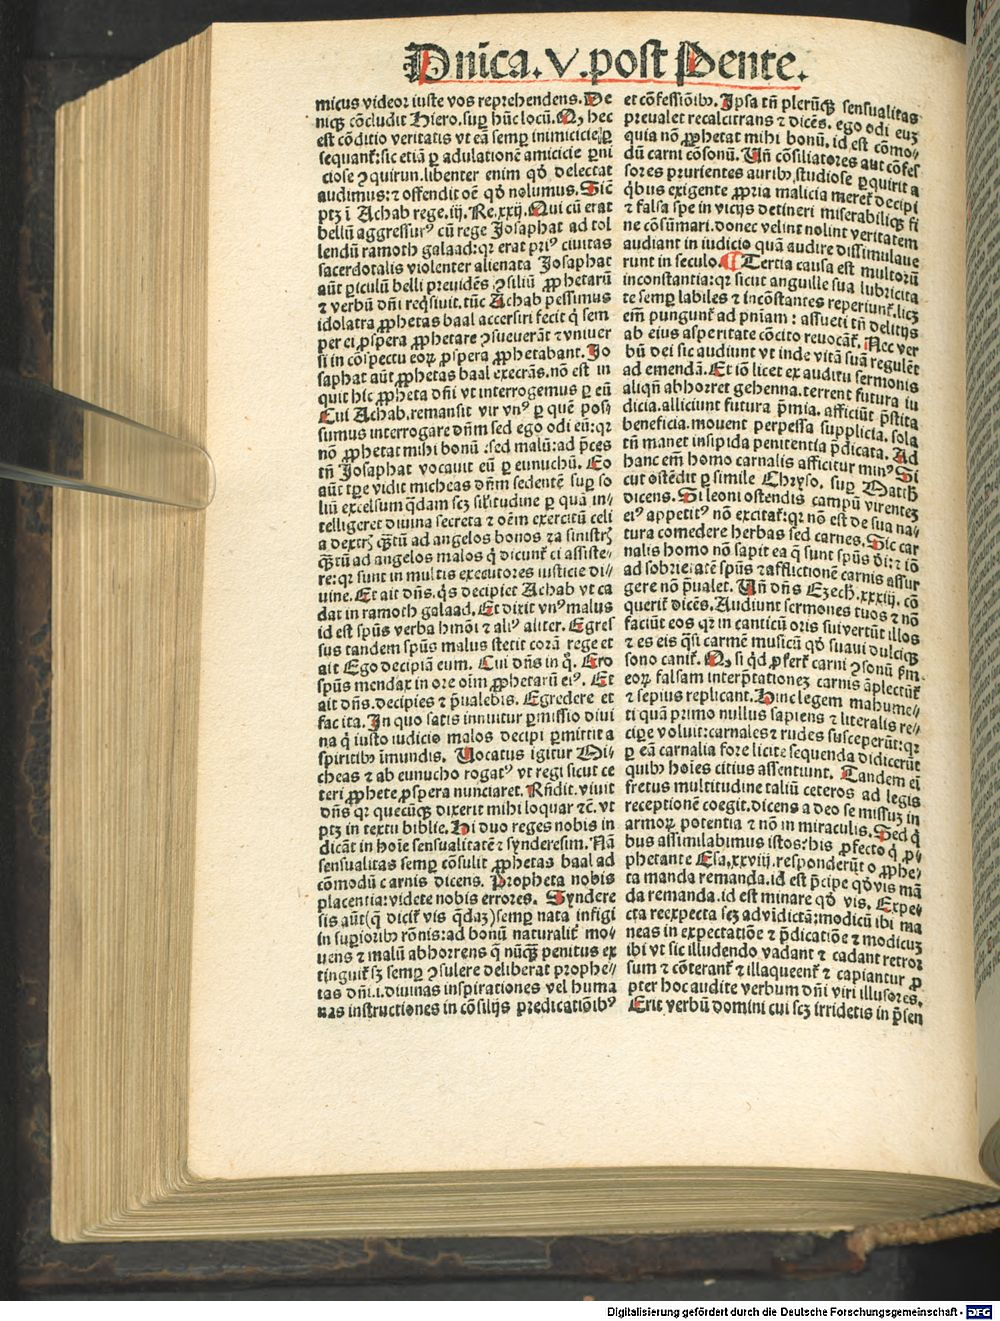 Dñica. V. post Pente.
micus videor iuste vos reprehendens. De
niqꝫ cōcludit Hiero. sup hūc locū. Qꝫ hec
est cōditio veritatis vt eā semp inimicicie
sequant̃: sic etiā ꝑ adulationē amicicie ꝑni
ciose ꝯquirun. libenter enim qđ delectat
audimus: ⁊ offendit oē qđ nolumus. Sic̄
ptꝫ ī Achab rege. iij. Re. xxij. Qui cū erat
bellū aggressurꝰ cū rege Josaphat ad tol
lendū ramoth galaad: qꝛ erat priꝰ ciuitas
sacerdotalis violenter alienata Josaphat
aūt ꝑiculū belli preuidēs ꝯsiliū ꝓphetarū
⁊ verbū dñi reqͥsiuit. tūc Achab pessimus
idolatra ꝓphetas baal accersiri fecit q̇ sem
per ei ꝓspera ꝓphetare ꝯsueuerāt ⁊ vniuer
si in cōspectu eoꝝ ꝓspera ꝓphetabant. Jo
saphat aūt ꝓphetas baal execrās. nō est in
quit hic ꝓpheta dñi vt interrogemus ꝑ eū
Cui Achab. remansit vir vnꝰ ꝑ quē pos
sumus interrogare dñm sed ego odi eū: qꝛ
nō ꝓphetat mihi bonū: sed malū: ad p̄ces
tñ Josaphat vocauit eū ꝑ eunuchū. Eo
aūt tꝑe vidit micheas dñm sedentē suꝑ so
liū excelsum q̄dam scꝫ siĺitudine ꝑ quā in⸗
telligeret diuina secreta ⁊ oēm exercitū celi
a dextrꝭ q̄ꝫtū ad angelos bonos ⁊a sinistrꝭ
q̄ꝫtū ad angelos malos q̇ dicunt̃ ei assiste⸗
re: qꝛ sunt in multis executores iusticie di⸗
uine. Et ait dñs. qͥs decipiet Achab vt ca
dat in ramoth galaad. Et dixit vnꝰ malus
id est spūs verba hmōi ⁊ aliꝰ aliter. Egres
sus tandem spūs malus stetit corā rege et
ait Ego decipiā eum. Cui dñs in q̇. Ero
spūs mendax in ore oīm ꝓphetarū eiꝰ. Et
ait dñs. decipies ⁊ p̄ualebis. Egredere et
fac ita. In quo satis innuitur ꝑmissio diui
na q̇ iusto iudicio malos decipi ꝑmittit a
spiritibꝰ īmundis. Uocatus igitur Mi⸗
cheas ⁊ ab eunucho rogatꝰ vt regi sicut ce
teri ꝓphete ꝓspera nunciaret. Rñdit. viuit
dñs qꝛ quecūqꝫ dixerit mihi loquar ⁊c̄. vt
ptꝫ in textu biblie. Hi duo reges nobis in
dicāt in hoīe sensualitatē ⁊ synderesim. Nā
sensualitas semꝑ cōsulit ꝓphetas baal ad
cōmodū carnis dicens. Propheta nobis
placentia: videte nobis errores. Syndere
sis aūt (q̄ dicit̃ vis q̄daꝫ) semꝑ nata infigi
in suꝑioribꝰ rōnis: ad bonū naturalit̃ mo⸗
uens ⁊ malū abhorrens q̄ nūqꝫ penitus ex
tinguit̃ sꝫ semꝑ ꝯsulere deliberat prophe⸗
tas dñi. i. diuinas inspirationes vel huma
nas instructiones in cōsilijs predicatiōibꝰ
et cōfessiōibꝰ. Ipsa tñ plerūqꝫ sensualitas
preualet recalcitrans ⁊ dicēs. ego odi euꝫ
quia nō ꝓphetat mihi bonū. id est cōmo⸗
dū carni cōsonū. Uñ cōsiliatores aut cōfes
sores prurientes auribꝰ studiose ꝑquirit a
q̇bus exigente ꝓpria malicia meret̃ decipi
⁊ falsa spe in vicijs detineri miserabiliqꝫ fi
ne cōsūmari. donec velint nolint veritatem
audiant in iudicio quā audire dissimulaue
runt in seculo. ¶ Tertia causa est multorū
inconstantia: qꝛ sicut anguille sua lubricita
te semꝑ labiles ⁊ incōstantes reperiunt̃. licꝫ
eīm pungunt̃ ad pn̄iam: assueti tñ delitijs
ab eius asperitate cōcito reuocāt̃. Nec ver
bū dei sic audiunt vt inde vitā suā regulēt
ad emendā. Et iō licet ex auditu sermonis
aliqñ abhorret gehenna. terrent futura iu
dicia. alliciunt futura p̄mia. afficiūt p̄stita
beneficia. mouent perpessa supplicia. sola
tñ manet insipida penitentia p̄dicata. Ad
hanc em̄ homo carnalis afficitur minꝰ Si
cut ostēdit ꝑ simile Chryso. suꝑ Math
dicens. Si leoni ostendis campū virenteꝫ
eiꝰ appetitꝰ nō excitat̃: qꝛ nō est de sua na⸗
tura comedere herbas sed carnes. Sic car
nalis homo nō sapit ea q̄ sunt spūs di: ⁊ iō
ad sobrietatē spūs ⁊ afflictionē carnis assur
gere nō p̄ualet. Uñ dñs Ezech. xxxiij. cō
querit̃ dicēs. Audiunt sermones tuos ⁊ nō
faciūt eos qꝛ in canticū oris sui vertūt illos
⁊ es eis q̄si carmē musicū qđ suaui dulciqꝫ
sono canit̃. Qꝫ si q̇d ꝓfert̃ carni ꝯsonū ꝑm
eoꝝ falsam interp̄tationeꝫ carnis āplectūt̃
⁊ sepius replicant. Hinc legem mahume⸗
ti quā primo nullus sapiens ⁊ literalis re⸗
ciꝑe voluit: carnales ⁊ rudes susceperūt: qꝛ
ꝑ eā carnalia fore licite sequenda didicerūt
quibꝰ hoīes citius assentiunt. Tandem eī
fretus multitudine taliū ceteros ad legis
receptionē coegit. dicens a deo se missuꝫ in
armoꝝ potentia ⁊ nō in miraculis. Sed q̇
bus assimilabimus istos: his ꝓfecto q̇ ꝓ⸗
phetante Esa. xxviij. responderūt o ꝓphe⸗
ta manda remanda. id est p̄cipe qđ vis mā
da remanda. id est minare qđ vis. Expe⸗
cta reexpecta scꝫ ad vīdictā: modicū ibi ma
neas in expectatiōe ⁊ p̄dicatiōe ⁊ modicuꝫ
ibi vt sic illudendo vadant ⁊ cadant retror
sum ⁊ cōterant̃ ⁊ illaqueent̃ ⁊ capiantur ꝓ
pter hoc audite verbum dñi viri illusores.
Erit verbū domini cui scꝫ irridetis in p̄sen
Digitalisierung gefördert durch die Deutsche Forschungsgemeinschaft - DFG